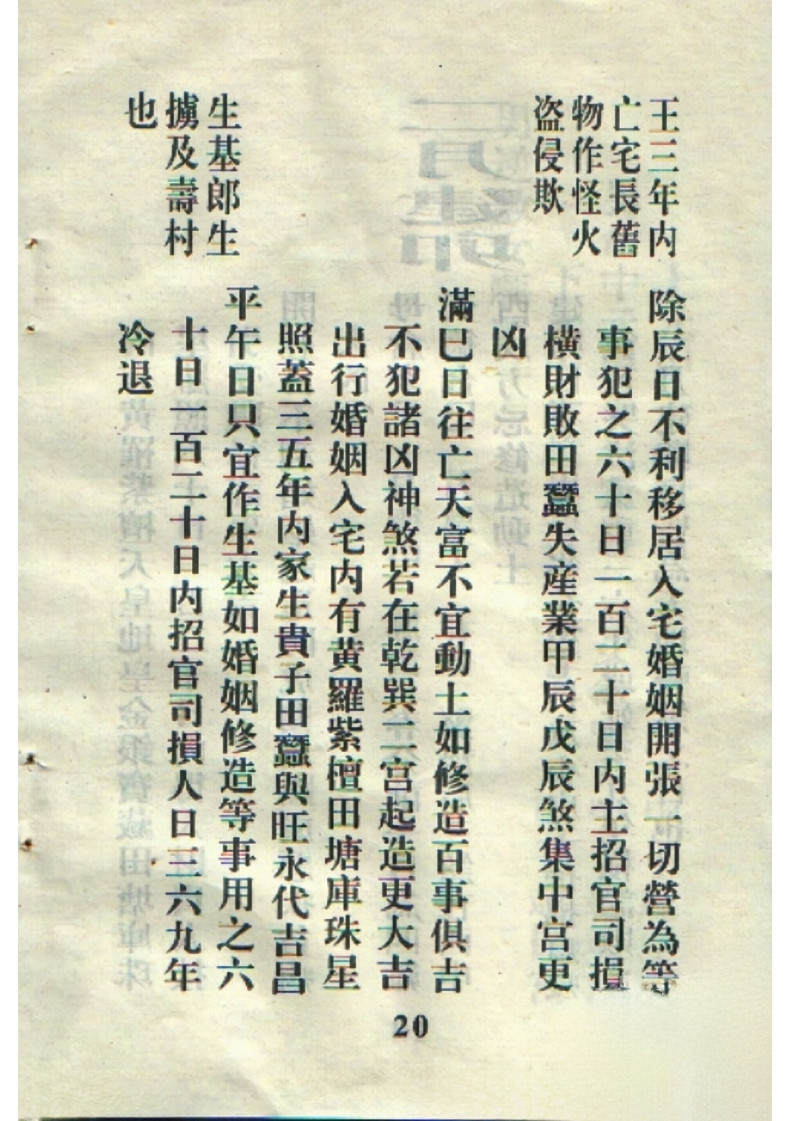 王三年内
亡宅長舊
物作怪火
盗侵欺
生基郎生
擄及壽村
也
除辰日不利移居入宅婚姻開張一切營為等
事犯之六十日一百二十日内主招官司損
橫財敗田蠶失産業甲辰戊辰煞集中宮更
凶
滿巳日往亡天富不宜動土如修造百事俱吉
不犯諸凶神煞若在乾巽二宮起造更大吉
出行婚姻入宅内有黄羅紫檀田塘庫珠星
照蓋三五年内家生貴子田蠶與旺永代吉昌
平午日只宜作生基如婚姻修造等事用之六
十日一百二十日内招官司損人日三六九年
冷退
20